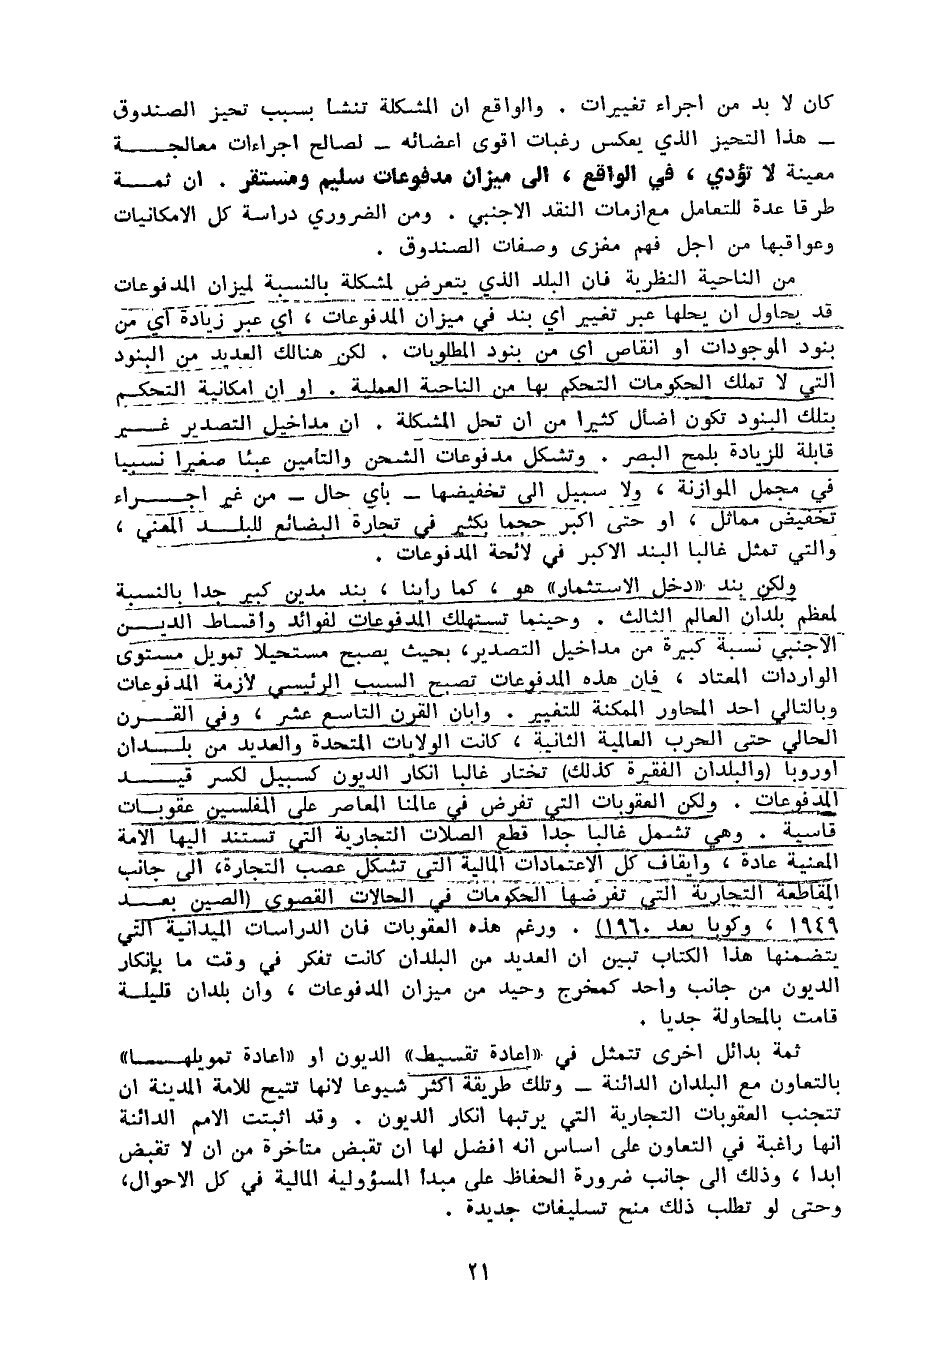 كان لا بد من اجراء تغييرات . والواقع ان المشكلة تنشأ بسبب تحيز الصندوق
ــ هذا التحيز الذي يعكس رغبات اقوى اعضائه ــ لصالح اجراءات معالجـــــة
معينة لا تؤدي ، في الواقع ، الى ميزان مدفوعات سليم ومستقر . ان ثمـــة
طرقا عدة للتعامل مع ازمات النقد الاجنبي . ومن الضروري دراسة كل الامكانيات
وعواقبها من اجل فهم مغزى وصفات الصندوق .
من الناحية النظرية فان البلد الذي يتعرض لمشكلة بالنسبة لميزان المدفوعات
قد يحاول ان يحلها عبر تغيير اي بند في ميزان المدفوعات ، اي عبر زيادة أي من
بنود الموجودات او انقاص اي من بنود المطلوبات . لكن هنالك العديد من البنود
التي لا تملك الحكومات التحكم بها من الناحية العملية . او ان امكانية التحكـم
بتلك البنود تكون اضأل كثيرا من ان تحل المشكلة . ان مداخيل التصدير غـــير
قابلة للزيادة بلمح البصر . وتشكل مدفوعات الشحن والتأمين عبئا صغيرا نسبيا
في مجمل الموازنة ، ولا سبيل الى تخفيضها ــ بأي حال ــ من غير اجــــراء
تخفيض مماثل ، او حتى اكبر حجما بكثير في تجارة البضائع للبلـــد المعني ،
والتي تمثل غالبا البند الاكبر في لائحة المدفوعات .
ولكن بند «دخل الاستثمار» هو ، كما رأينا ، بند مدين كبير جدا بالنسبة
لمعظم بلدان العالم الثالث . وحينما تستهلك المدفوعات لفوائد وأقساط الديـــن
الاجنبي نسبة كبيرة من مداخيل التصدير، بحيث يصبح مستحيلا تمويل مستوى
الواردات المعتاد ، فان هذه المدفوعات تصبح السبب الرئيسي لازمة المدفوعات
وبالتالي احد المحاور الممكنة للتغيير . وابان القرن التاسع عشر ، وفي القـــرن
الحالي حتى الحرب العالمية الثانية ، كانت الولايات المتحدة والعديد من بلـــدان
اوروبا (والبلدان الفقيرة كذلك) تختار غالبا انكار الديون كسبيل لكسر قيـــد
المدفوعات . ولكن العقوبات التي تفرض في عالمنا المعاصر على المفلسين عقوبـات
قاسية . وهي تشمل غالبا جدا قطع الصلات التجارية التي تستند اليها الامة
المعنية عادة ، وايقاف كل الاعتمادات المالية التي تشكل عصب التجارة، الى جانب
المقاطعة التجارية التي تفرضها الحكومات في الحالات القصوى (الصين بعـــد
١٩٤٩ ، وكوبا بعد ١٩٦٠) . ورغم هذه العقوبات فان الدراسات الميدانية التي
يتضمنها هذا الكتاب تبين ان العديد من البلدان كانت تفكر في وقت ما بإنكار
الديون من جانب واحد كمخرج وحيد من ميزان المدفوعات ، وان بلدان قليلـة
قامت بالمحاولة جديا .
ثمة بدائل اخرى تتمثل في «اعادة تقسيط» الديون او «اعادة تمويلهـــا»
بالتعاون مع البلدان الدائنة ــ وتلك طريقة اكثر شيوعا لانها تتيح للامة المدينة ان
تتجنب العقوبات التجارية التي يرتبها انكار الديون . وقد اثبتت الامم الدائنة
انها راغبة في التعاون على اساس انه افضل لها ان تقبض متأخرة من ان لا تقبض
ابدا ، وذلك الى جانب ضرورة الحفاظ على مبدأ المسؤولية المالية في كل الاحوال،
وحتى لو تطلب ذلك منح تسليفات جديدة .
٢١